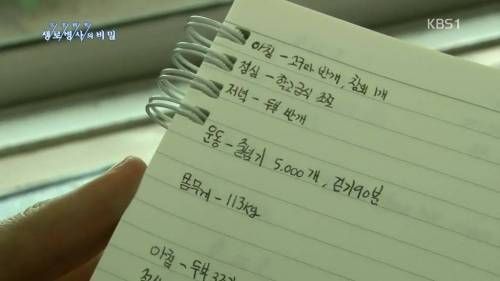 생로병사의 비밀
KBS1
아침 - 고구마 반개, 참외 1개
점심 - 학교급식 조금
저녁 - 두부 반개
운동 - 줄넘기 5,000개, 걷기 90분
몸무게 - 113kg
아침 - 두부
점심